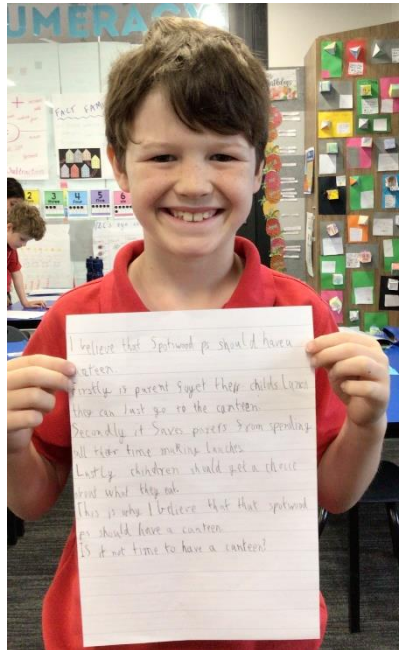 UMERACY
FACT FAM
2 3 4 5 6
I believe that Spotwood ps should have a
canteen.
Firstly is parent forget their childs Lunch
they can last go to the canteen.
Secondly it Saves parers from spending
all their time making lunches.
Lastly chihdren should get a choice
what they eat.
This is why I believe that that spotswood
ps should have a canteen.
IS it not time to have a canteen?